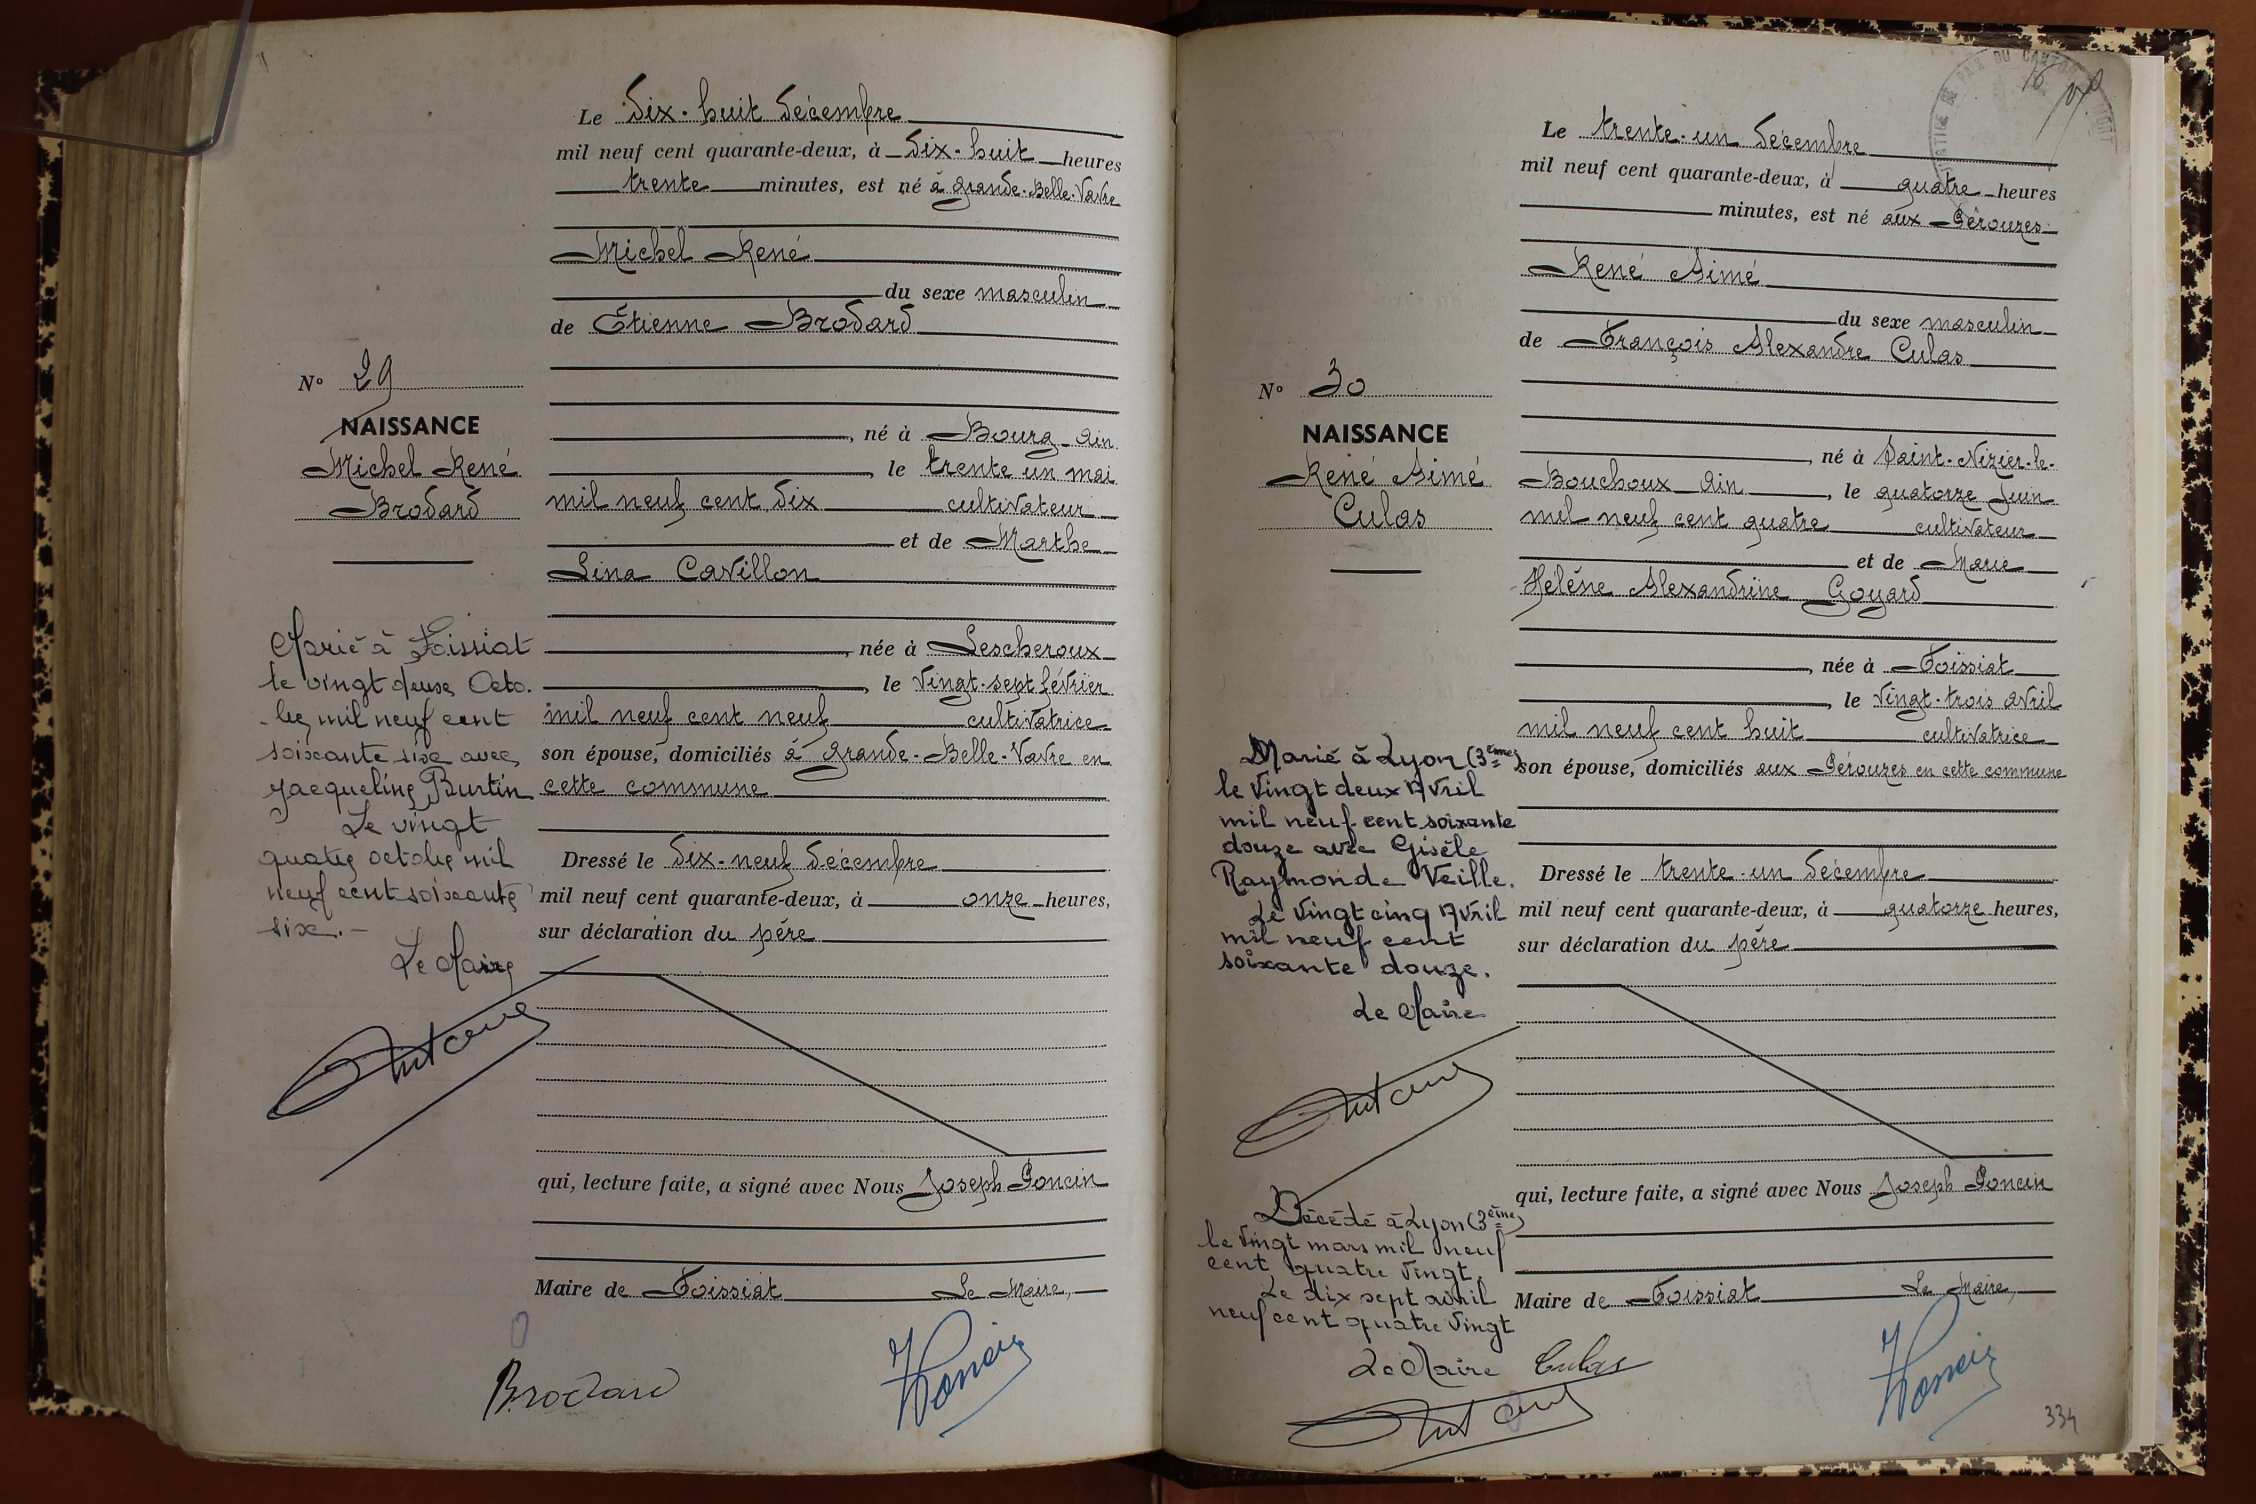 Le dix-huit décembre
mil neuf cent quarante-deux, à dix-huit heures
trente minutes, est né à grande-Belle-Vavre
Michel René
du sexe masculin
de Étienne Brodard
N° 29
NAISSANCE
Michel René
Brodard
, né à Bourg Ain
, le trente un mai
mil neuf cent dix cultivateur
et de Marthe
Lina Cavillon
, née à Lescheroux
, le vingt-sept février
mil neuf cent neuf cultivatrice
son épouse, domiciliés à grande-Belle-Vavre en
cette commune
Dressé le dix-neuf décembre
mil neuf cent quarante-deux, à onze heures,
sur déclaration du père
Marié à Foissiat
le vingt deux Octo-
bre mil neuf cent
soixante six avec
Jacqueline Burtin
Le vingt
quatre octobre mil
neuf cent soixante
six.-
Le Maire
qui, lecture faite, a signé avec Nous Joseph Poncin
Maire de Foissiat Le Maire,
Brodard
Poncin
DE PAIX DU CANTON
Le trente-un décembre
mil neuf cent quarante-deux, à quatre heures
minutes, est né aux Pérouzes
René Aimé
du sexe masculin
de François Alexandre Culas
N° 30
NAISSANCE
René Aimé
Culas
, né à Saint-Nizier-le-
Bouchoux Ain, le quatorze juin
mil neuf cent quatre cultivateur
et de Marie
Hélène Alexandrine Goyard
, née à Foissiat
, le vingt-trois avril
mil neuf cent huit cultivatrice
son épouse, domiciliés aux Pérouzes en cette commune
Dressé le trente-un décembre
mil neuf cent quarante-deux, à quatorze heures,
sur déclaration du père
Marié à Lyon (3ème)
le vingt deux Avril
mil neuf cent soixante
douze avec Gisèle
Raymonde Veille.
Le vingt cinq Avril
mil neuf cent
soixante douze.
Le Maire
qui, lecture faite, a signé avec Nous Joseph Poncin
Décédé à Lyon (3ème)
le vingt mars mil neuf
cent quatre vingt.
Le dix sept avril
neuf cent quatre vingt
Le Maire
Maire de Foissiat Le Maire,
Culas
Poncin
334